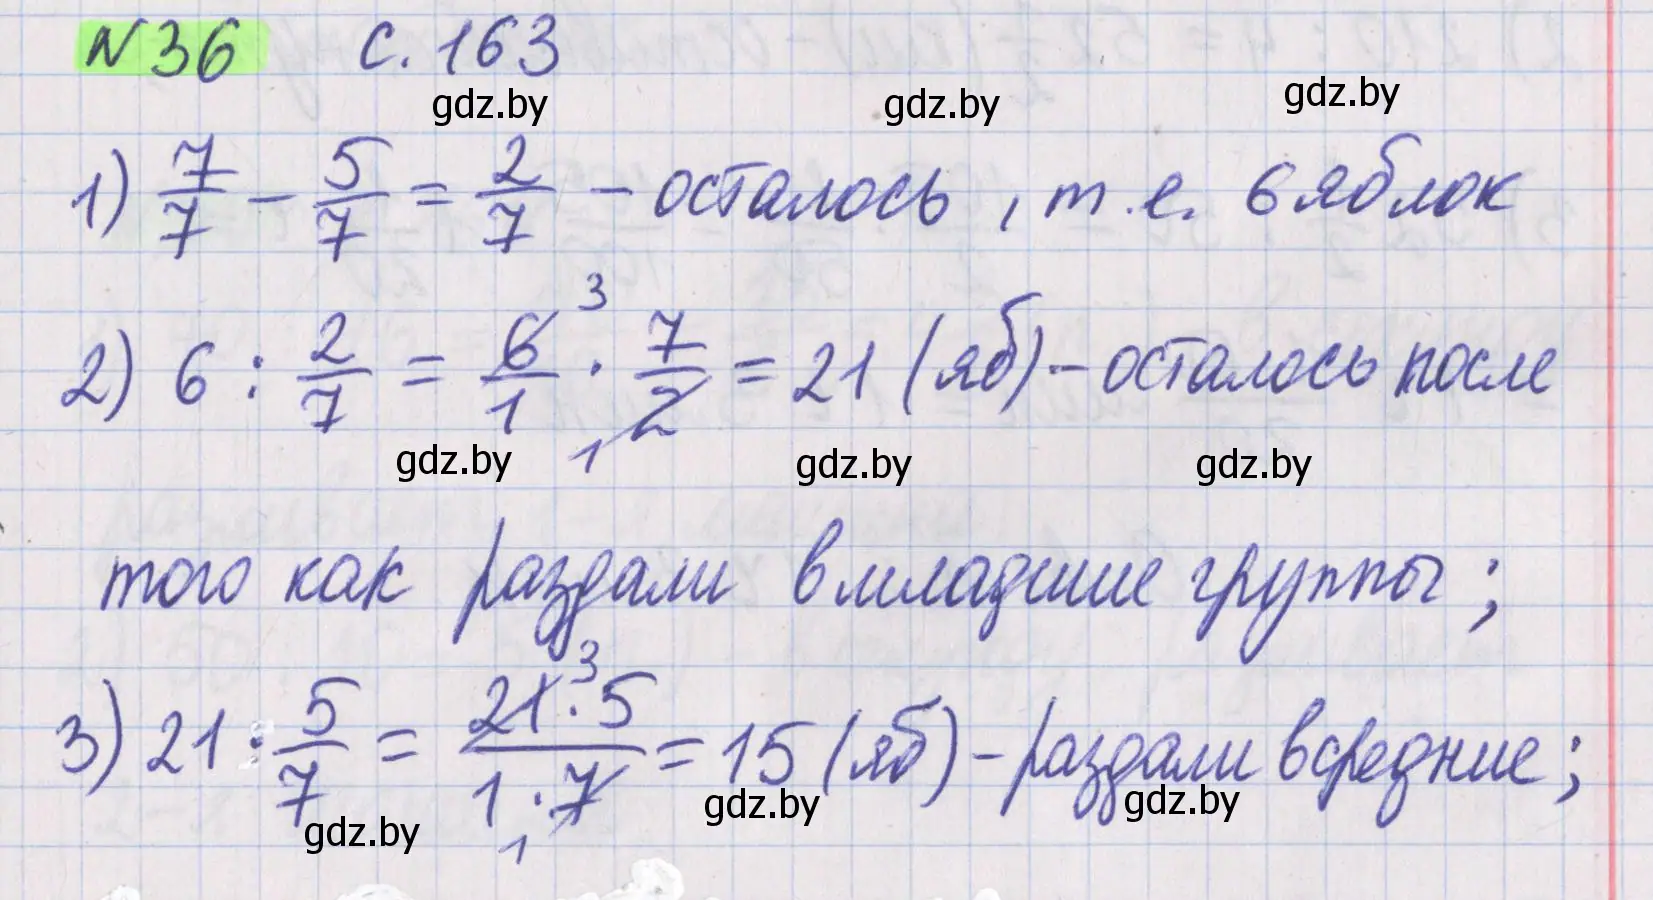 №36 с. 163
gdz.by gdz.by gdz.by
1) 7/7 - 5/7 = 2/7 - осталось, т.е. 6 яблок
2) 6 : 2/7 = 6/1 3 · 7/2 1 = 21 (яб) - осталось после
gdz.by gdz.by gdz.by
того как раздали в младшие группы;
3) 21 · 5/7 = 21 3 · 5 / 1 · 7 1 = 15 (яб) - раздали в средние;
gdz.by gdz.by gdz.by